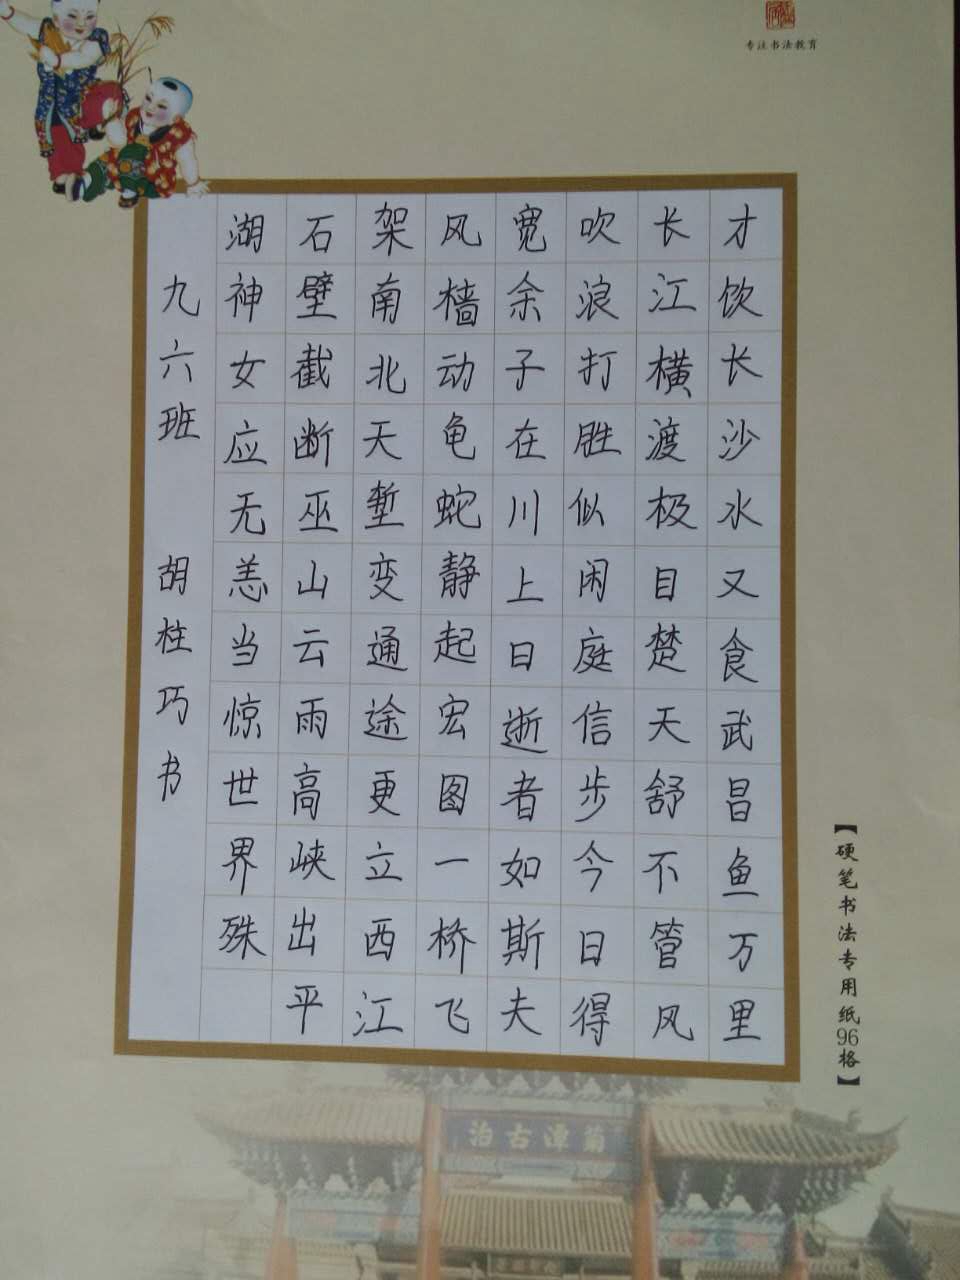 专注书法教育
才饮长沙水又食武昌鱼万里
长江横渡极目楚天舒不管风
吹浪打胜似闲庭信步今日得
宽余子在川上日逝者如斯夫
风樯动龟蛇静起宏图一桥飞
架南北天堑变通途更立西江
石壁截断巫山云雨高峡出平
湖神女应无恙当惊世界殊
九六班 胡柱巧书
【硬笔书法专用纸96格】
菊潭古治